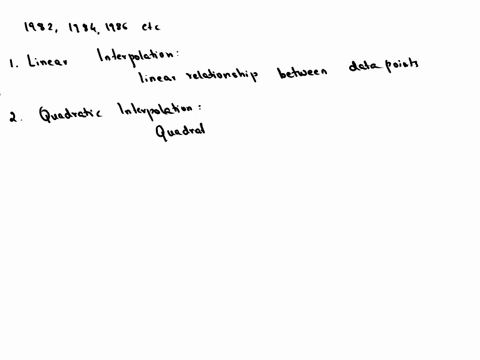 1982, 1984, 1986 etc
1. Linear Interpolation:
linear relationship between data points
2. Quadratic Interpolation:
Quadral